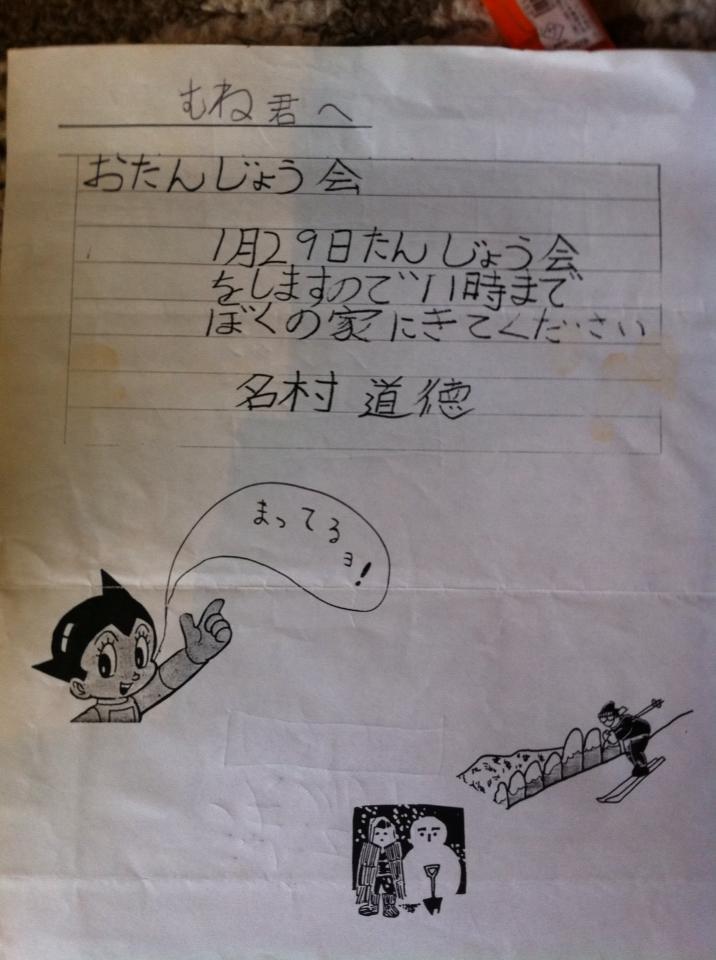 むね君へ
おたんじょう会
1月29日たんじょう会
をしますので11時まで
ぼくの家にきてください
名村 道徳
まってる
ョ!